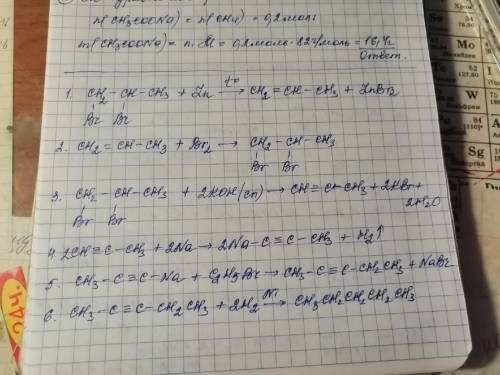 n(CH3COONa) = n(CH4) = 0,2 моль
m(CH3COONa) = n·M = 0,2 моль·82 г/моль = 16,4 г
Ответ.
1. CH2-CH-CH3 + Zn t° → CH2=CH-CH3 + ZnBr2
Br Br
2. CH2=CH-CH3 + Br2 → CH2-CH-CH3
Br Br
3. CH2-CH-CH3 + 2KOH(сп) → CH≡C-CH3 + 2KBr +
Br Br
2H2O
4. 2CH≡C-CH3 + 2Na → 2Na-C≡C-CH3 + H2↑
5. CH3-C≡C-Na + C2H5Br → CH3-C≡C-CH2CH3 + NaBr
6. CH3-C≡C-CH2CH3 + 2H2 Ni → CH3CH2CH2CH2CH3
Хром
Mo
Nd
W
Sg
24Ч.